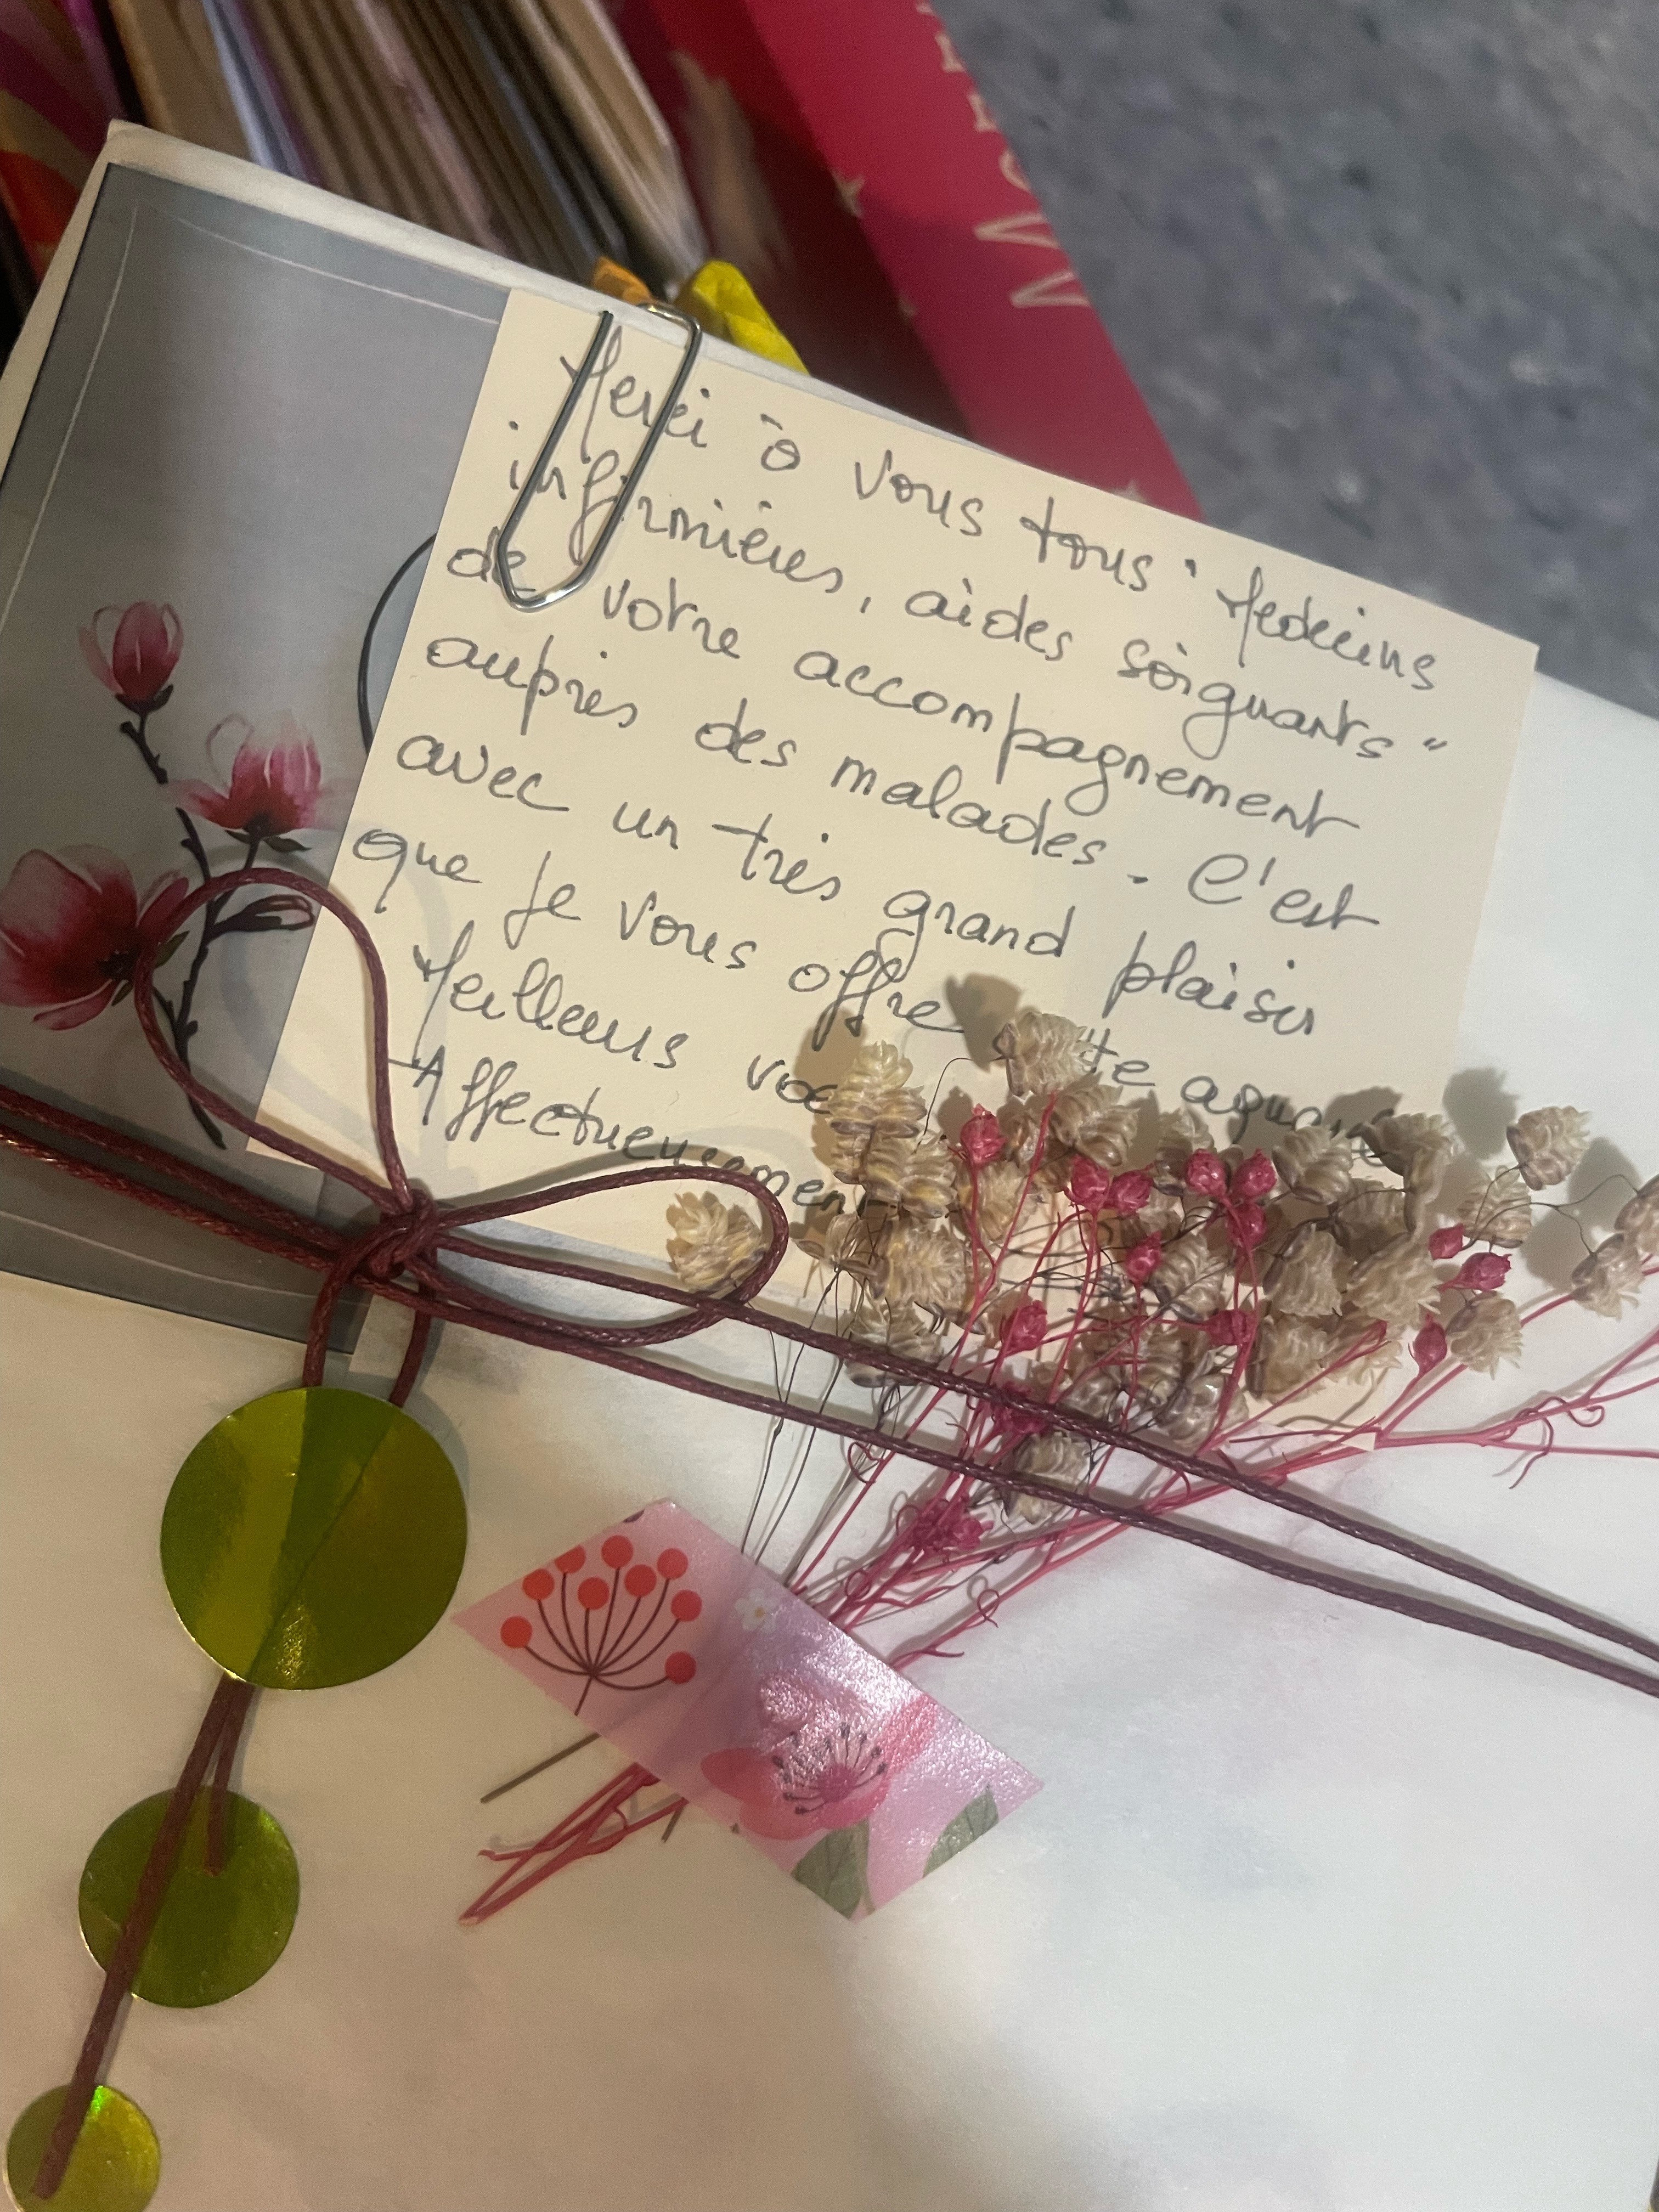 Merci à vous tous "Medecins
infirmières, aides soignants"
de votre accompagnement
auprès des malades. C'est
avec un très grand plaisir
que je vous offre
Meilleurs
Affectueusement